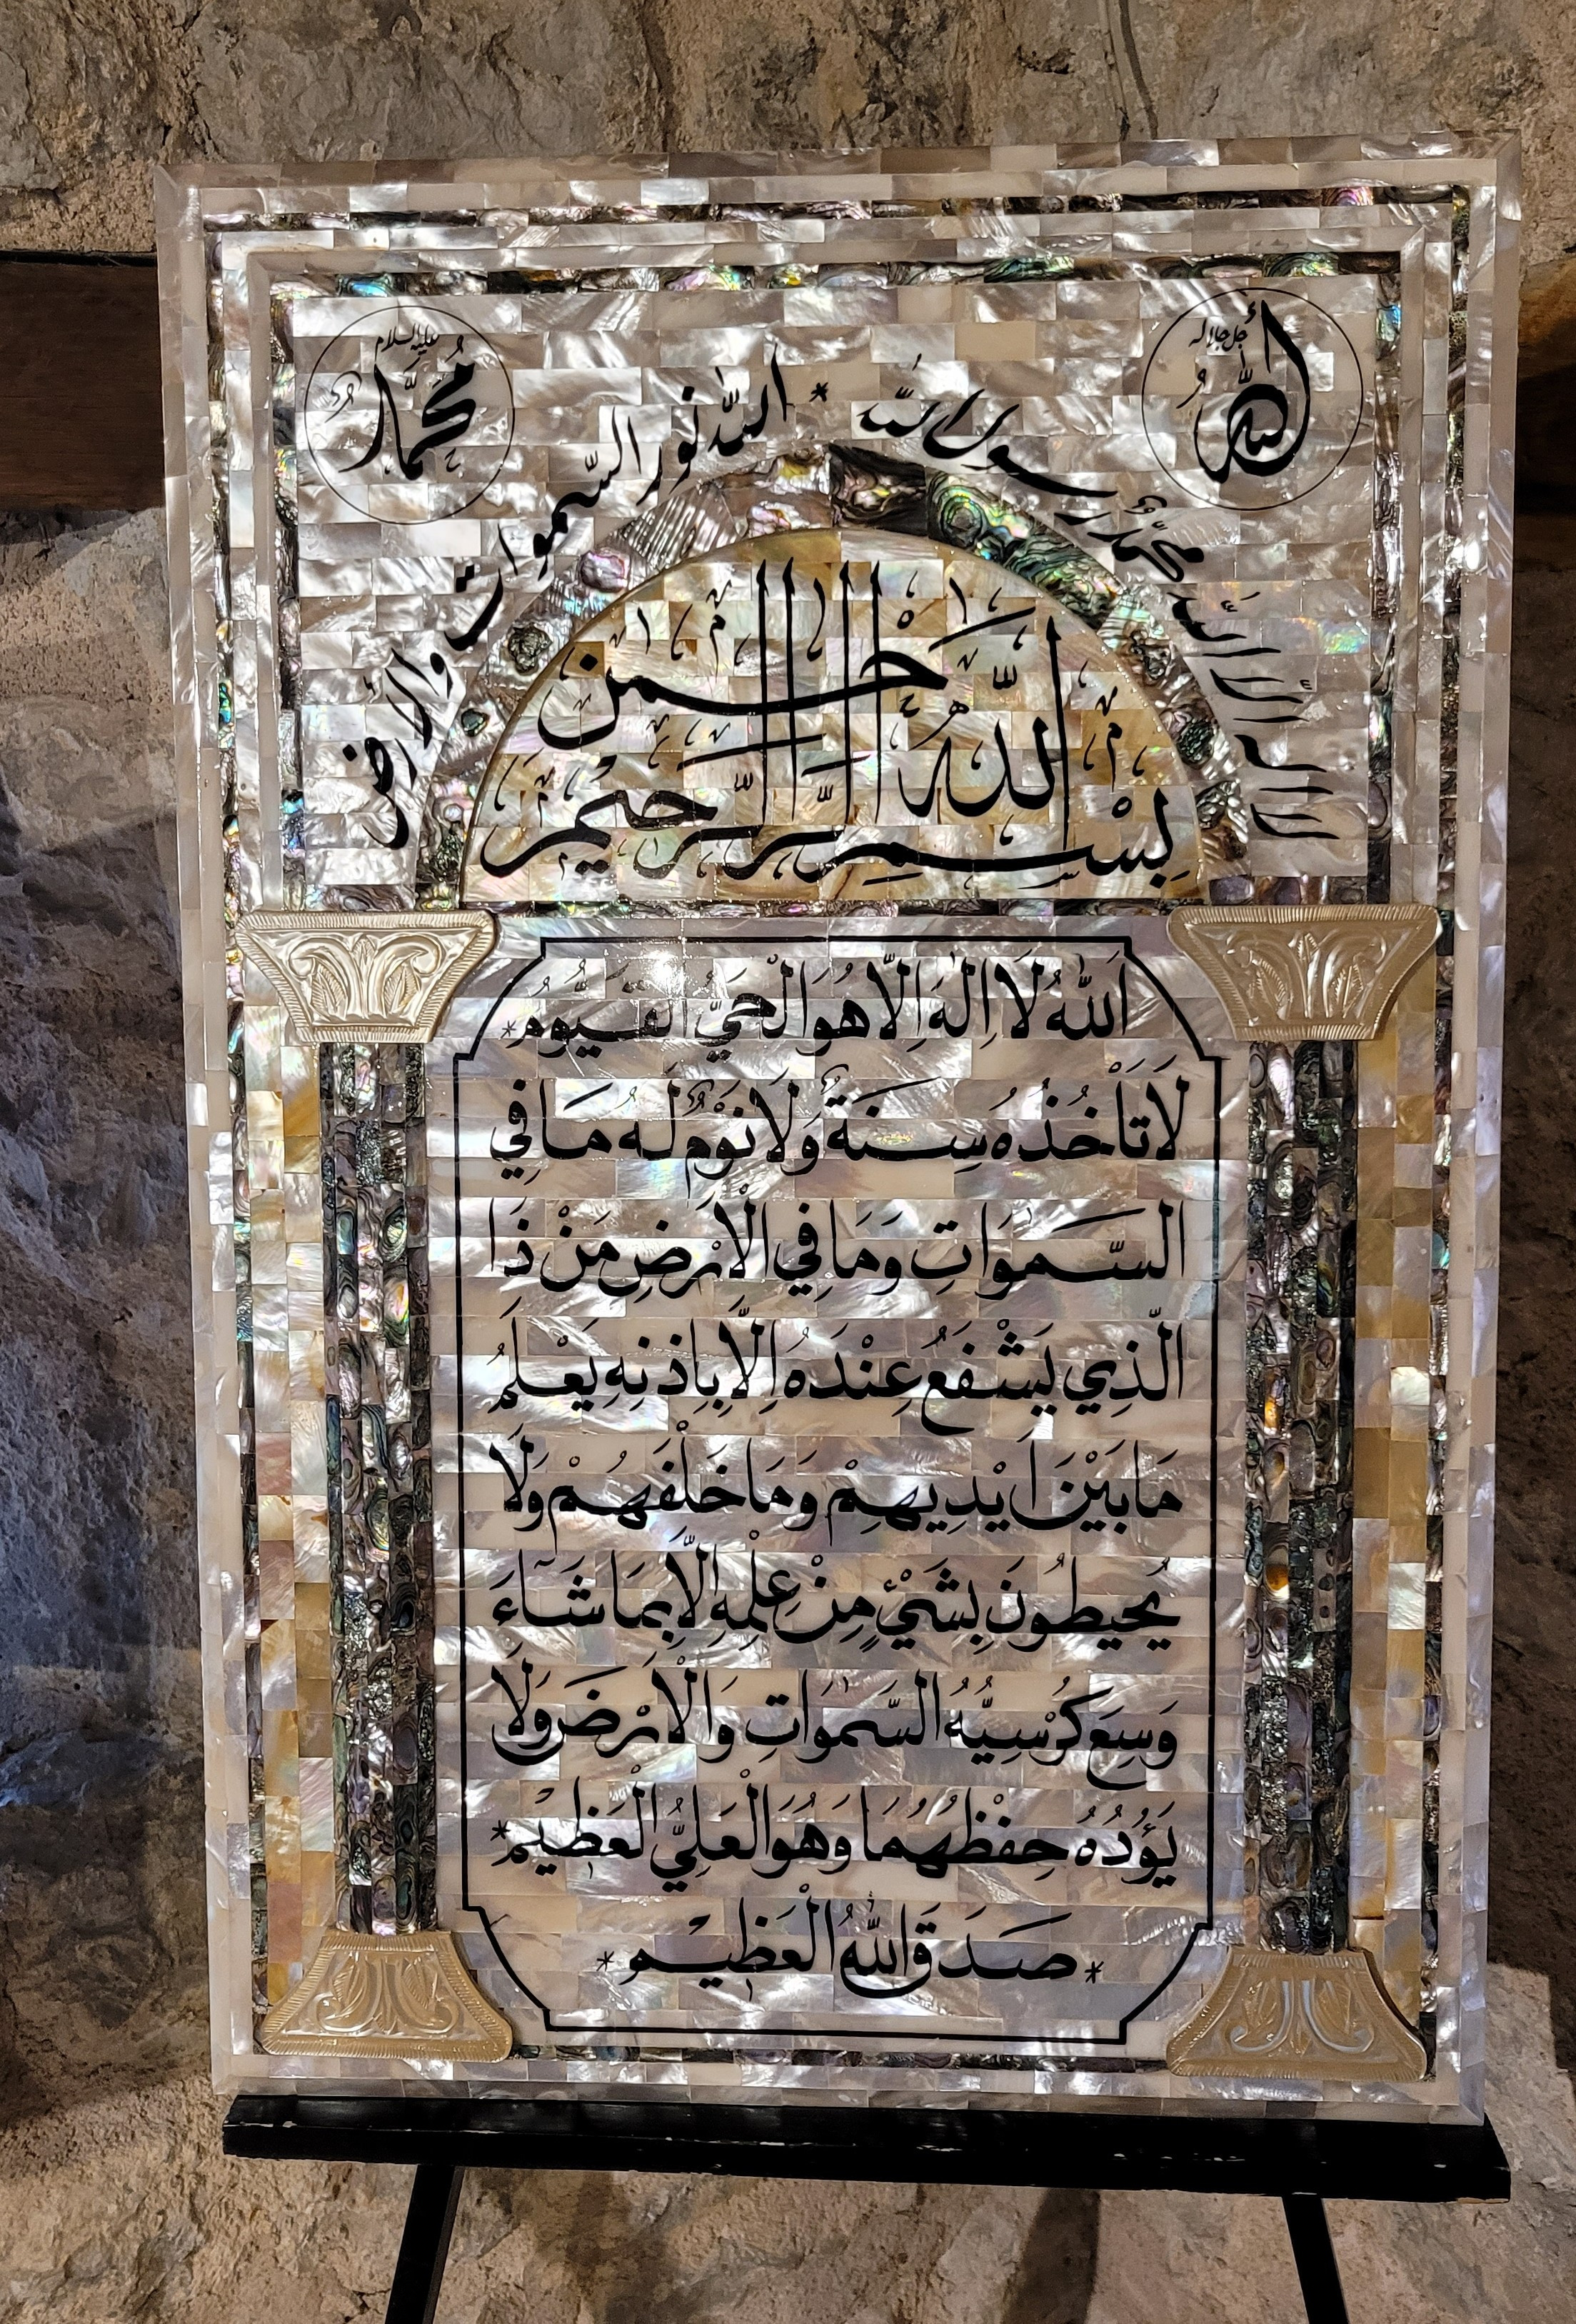 الله جل جلاله
محمد عليه السلام
لا اله الا الله محمد رسول الله * الله نور السموات والأرض
بسم الله الرحمن الرحيم
اَللّٰهُ لَا اِلٰهَ اِلَّا هُوَ الْحَيُّ الْقَيُّومُ *
لَا تَاْخُذُهُ سِنَةٌ وَلَا نَوْمٌ لَهُ مَا فِي
السَّمٰوَاتِ وَمَا فِي الْاَرْضِ مَنْ ذَا
الَّذِي يَشْفَعُ عِنْدَهُ اِلَّا بِاِذْنِهِ يَعْلَمُ
مَا بَيْنَ اَيْدِيهِمْ وَمَا خَلْفَهُمْ وَلَا
يُحِيطُونَ بِشَيْءٍ مِنْ عِلْمِهِ اِلَّا بِمَا شَاءَ
وَسِعَ كُرْسِيُّهُ السَّمٰوَاتِ وَالْاَرْضَ وَلَا
يَؤُدُهُ حِفْظُهُمَا وَهُوَ الْعَلِيُّ الْعَظِيمُ *
* صَدَقَ اللهُ الْعَظِيمُ *